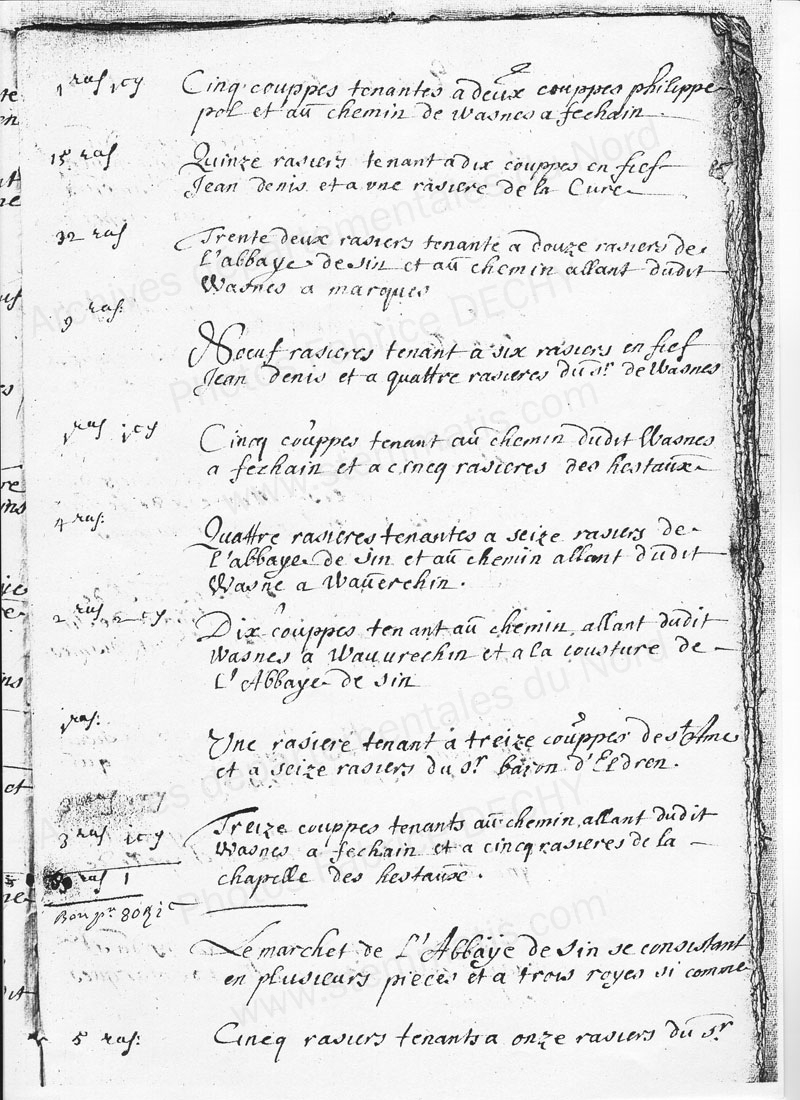 1 ras 1 cy Cinq couppes tenantes a deux couppes philippe
pol et au chemin de wasnes a fechain
15 ras Quinze rasiers tenant a dix couppes en fief
Jean denis et a une rasiere de la Cure
32 ras Trente deux rasiers tenante a douze rasiers de
L'abbaye de sin et au chemin allant dudit
Wasnes a marques
9 ras:
Noeuf rasieres tenant a six rasiers en fief
Jean denis et a quattre rasieres du sr de Wasnes
1 ras 1 cy Cincq couppes tenant au chemin dudit Wasnes
a fechain et a cincq rasieres des hestaux
4 ras:
Quattre rasieres tenantes a seize rasiers de
L'abbaye de sin et au chemin allant dudit
Wasne a Wauerchin.
2 ras 2 cy Dix couppes tenant au chemin allant dudit
wasnes a Wauurechin et a la cousture de
L'Abbaye de sin
1 ras:
Une rasiere tenant a treize couppes de st Ame
et a seize rasiers du sr baron d'Eldren.
3 ras 1 cy Treize couppes tenants au chemin allant dudit
wasnes a fechain et a cincq rasieres de la
chapelle des hestaux.
ras 1
Bon pr 80 R 1 c
Le marchet de L'Abbaye de sin se consistant
en plusieurs pieces et a trois royes si comme
5 ras: Cincq rasiers tenants a onze rasiers du sr
Archives départementales du Nord
Photos Fabrice DECHY
www.stemmatis.com
Archives départementales du Nord
Photos Fabrice DECHY
www.stemmatis.com